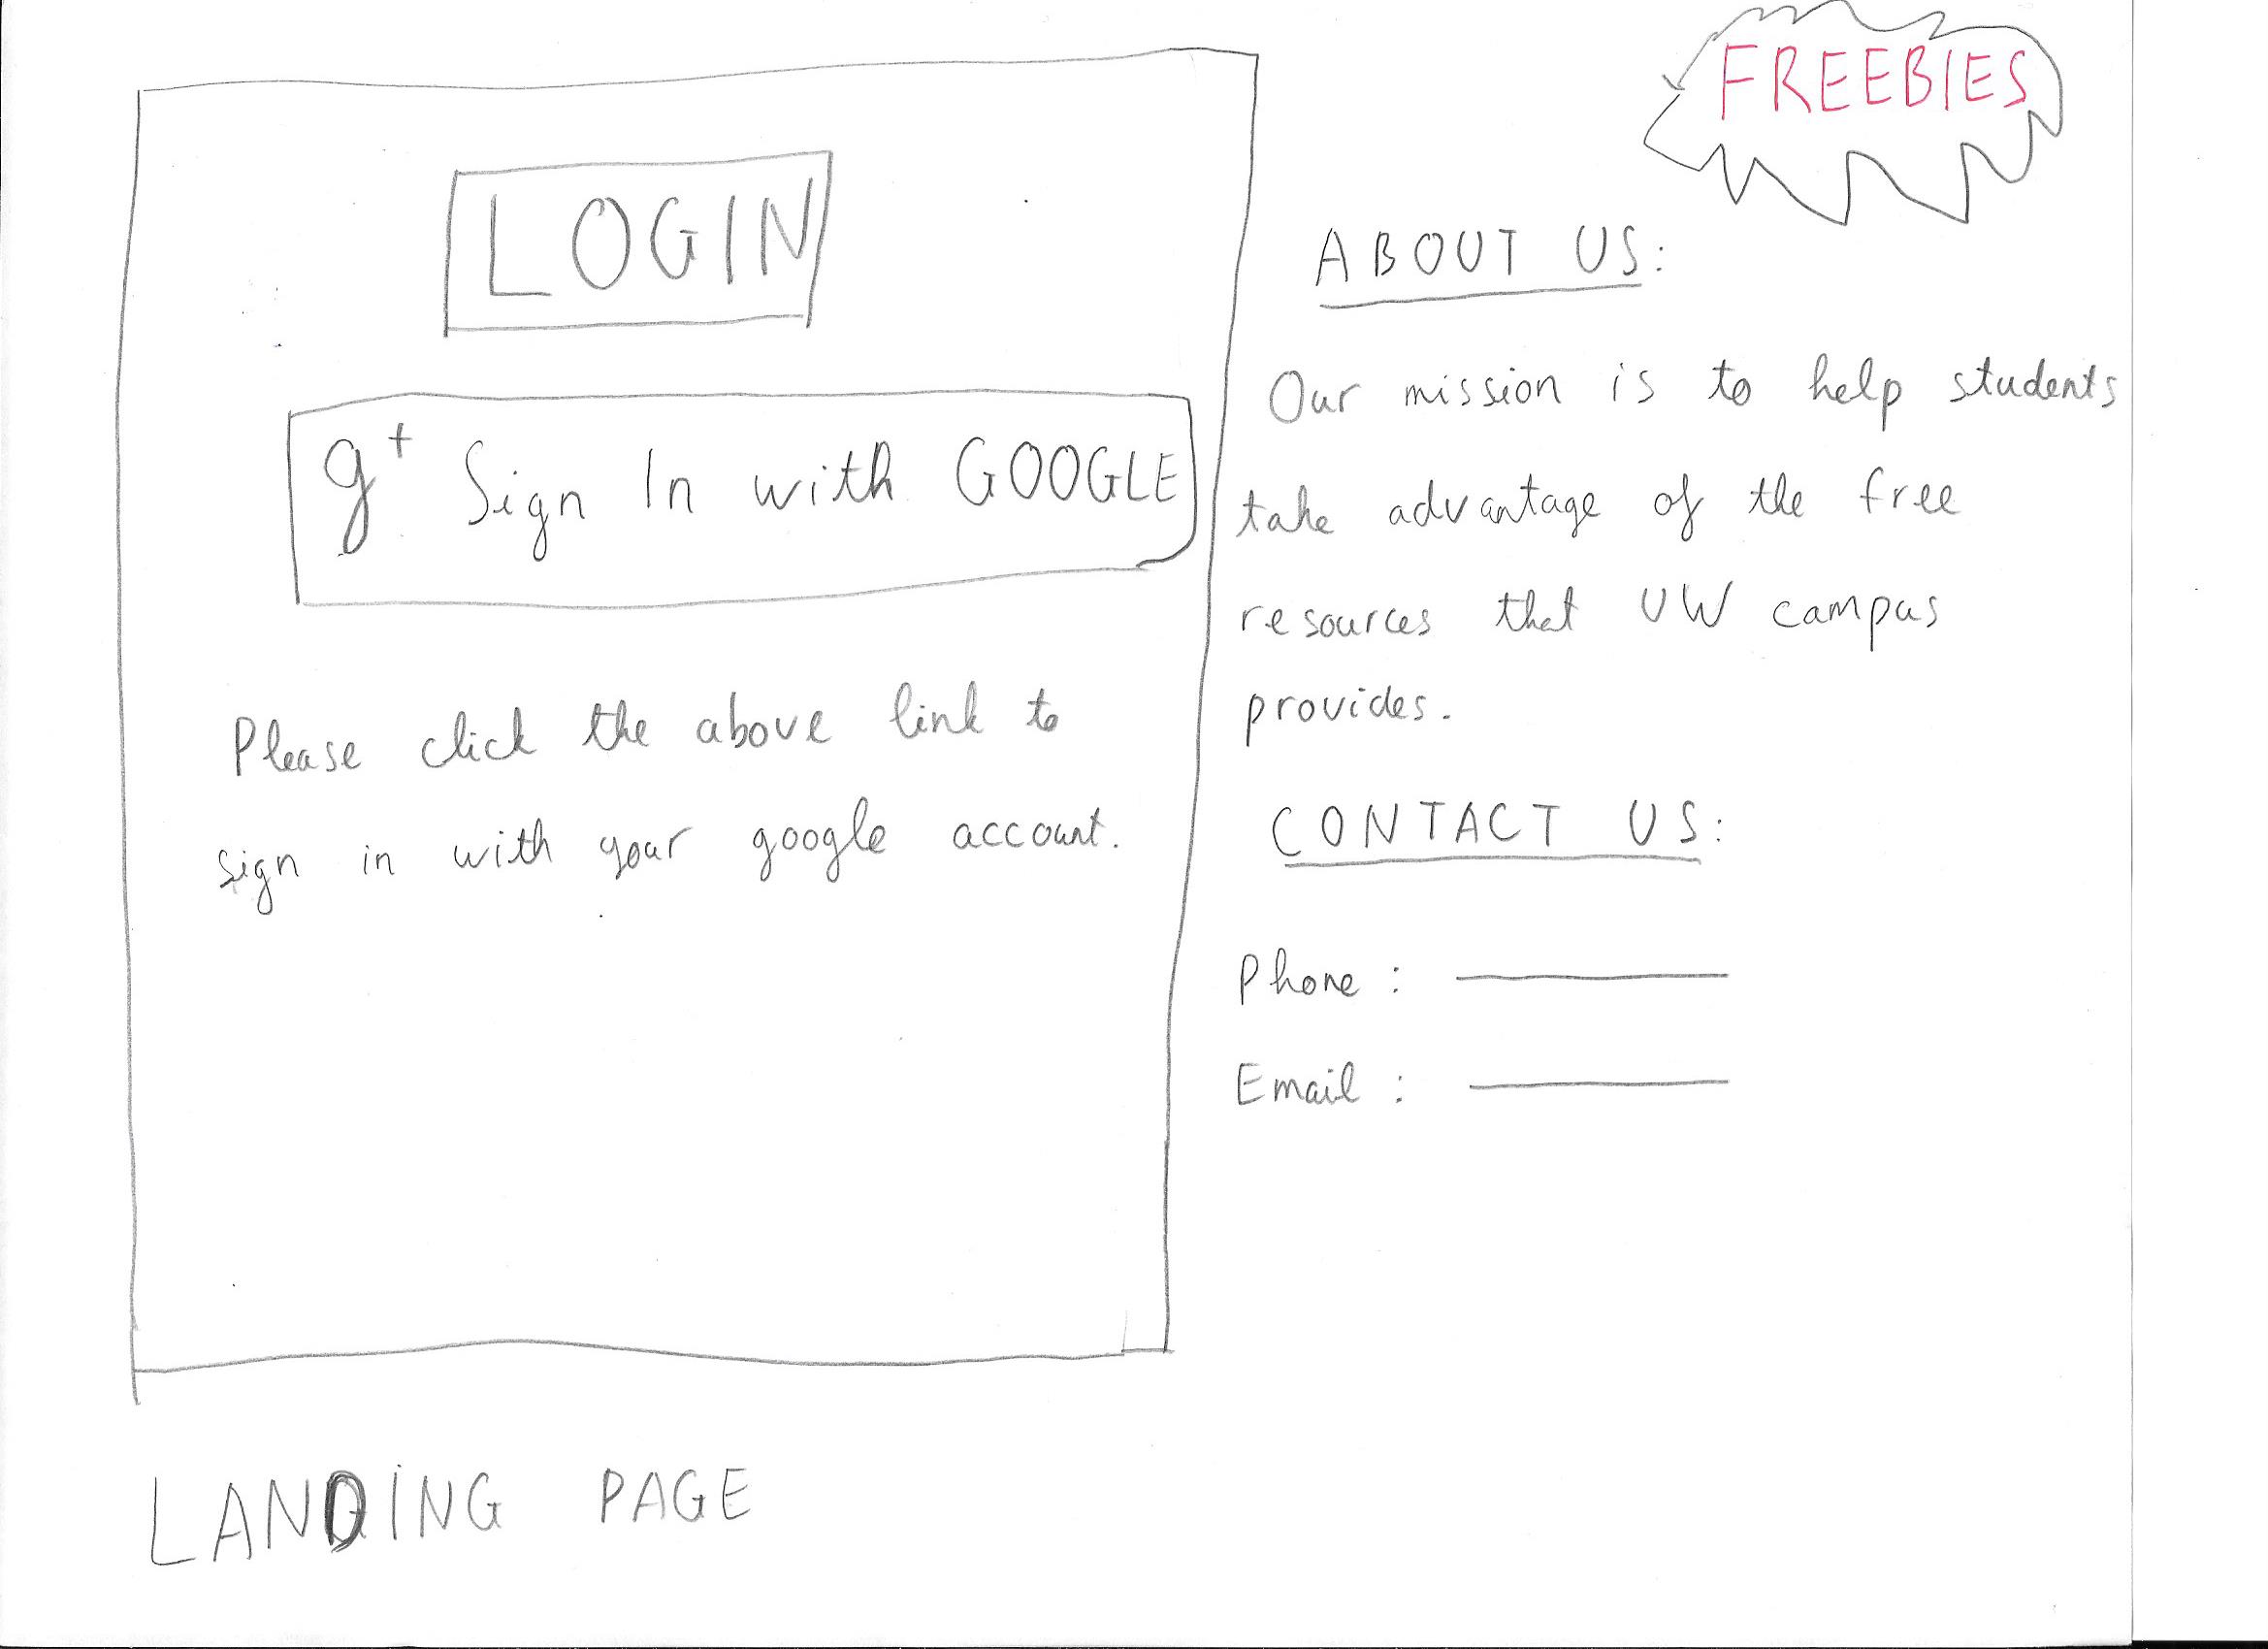 FREEBIES
LOGIN
g+ Sign In with GOOGLE
Please click the above link to
sign in with your google account.
ABOUT US:
Our mission is to help students
take advantage of the free
resources that UW campus
provides.
CONTACT US:
Phone :
Email :
LANDING PAGE